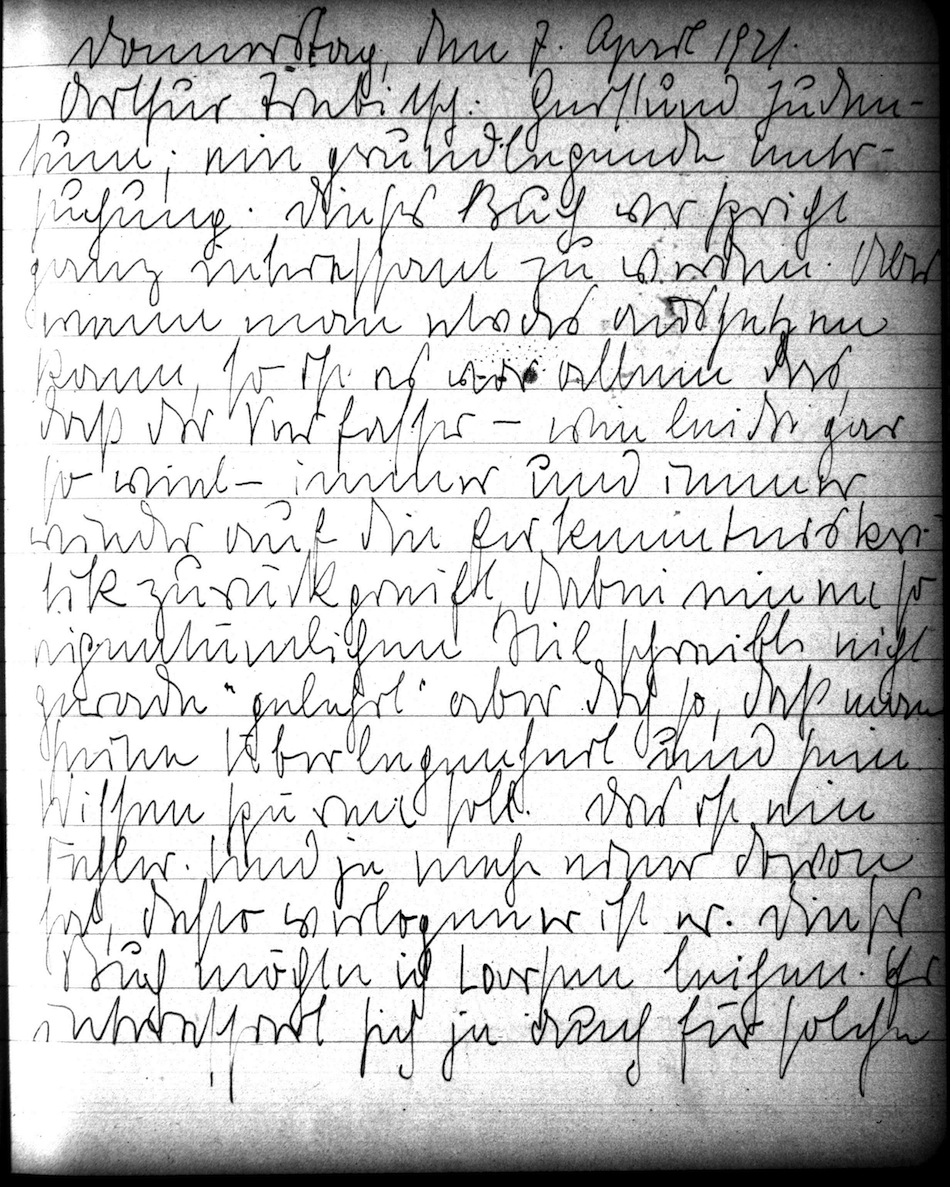 Donnerstag, den 7. April 1921.
Arthur Trebitsch: Geist und Juden-
tum; eine grundlegende Unter-
suchung. Dieses Buch verspricht
ganz interessant zu werden. Aber
wenn man etwas aussetzen
kann, so ist es vor allem das,
daß der Verfasser – wie leider gar
so viele – immer und immer
wieder auf die Erkenntniskri-
tik zurückgreift, dabei einen so
eigentümlichen Stil schreibt, nicht
gerade "gelehrt" aber doch so, daß man
seine Überlegenheit und sein
Wissen spüren soll. Das ist ein
Fehler. Und je mehr einer davon
hat, desto verlogener ist er. Dieses
Buch möchte ich Larsen leihen. Er
interessiert sich ja auch für solche